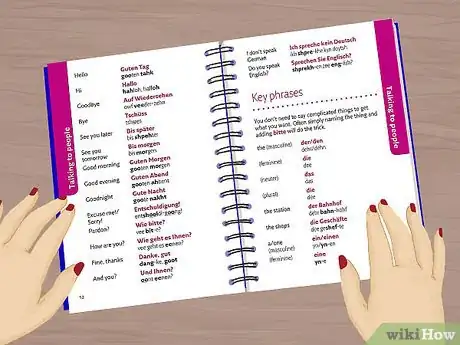 Talking to people
Hello
Guten Tag
gooten tahk
Hi
Hallo
hahloh, halloh
Goodbye
Auf Wiedersehen
owf veederzehn
Bye
Tschüss
tshues
See you later
Bis später
bis shpehter
See you
tomorrow
Bis morgen
bis morgen
Good morning
Guten Morgen
gooten morgen
Good evening
Guten Abend
gooten ahbent
Goodnight
Gute Nacht
goote nakht
Excuse me!/
Entschuldigung!
entshooldi-goong!
Pardon?
Wie bitte?
vee bit-e?
How are you?
Wie geht es Ihnen?
vee geht es eenen?
Fine, thanks
Danke, gut
dang-ke, goot
And you?
Und Ihnen?
oont eenen?
10
I don't speak
German
Ich spreche kein Deutsch
Do you speak
English?
Sprechen Sie Englisch?
shprekh-en zee eng-lish?
Key phrases
You don't need to say complicated things to get
what you want. Often simply naming the thing and
adding bitte will do the trick.
the (masculine)
der/den
dehr/dehn
(feminine)
die
dee
(neuter)
das
das
(plural)
die
dee
the station
der Bahnhof
dehr bahn-hohf
the shops
die Geschäfte
dee geshef-te
a/one
(masculine)
ein/einen
yn/yn-en
(feminine)
eine
yn-e
Talking to people
wikiHow